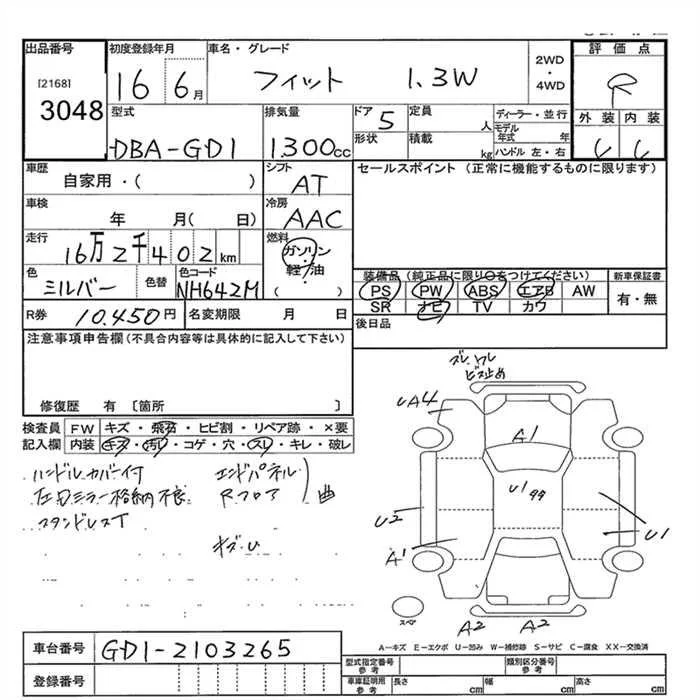 出品番号
[2168]
3048
初度登録年月
16 6月
車名・グレード
フィット 1.3W
2WD
・
4WD
評価点
R
外装 内装
U U
型式
DBA-GD1
排気量
1300cc
ドア 5
形状
定員 人
積載 kg
ディーラー・並行
モデル年式 年
ハンドル 左・右
車歴
自家用・( )
シフト
AT
セールスポイント(正常に機能するものに限ります)
車検
年 月( 日)
冷房
AAC
走行
16万2千402km
燃料
ガソリン
・
軽油
( )
色
シルバー
色替
色コード
NH642M
装備品(純正品に限り○をつけてください)
PS PW ABS エアB AW
SR ナビ TV カワ
新車保証書
有・無
R券 10.450円
名変期限 月 日
後日品
注意事項申告欄(不具合内容等は具体的に記入して下さい)
修復歴 有〔箇所 〕
検査員記入欄
FW キズ・飛石・ヒビ割・リペア跡・×要
内装 キズ・汚れ・コゲ・穴・スレ・キレ・破レ
ハンドルカバー付
左ドアミラー格納不良
スタンドレスT
エンドパネル
Rフロア
曲
キズ・U
ズレ・ワレ
ビス止め
UA4
A1
U1
99
U2
A1
U1
A2 A2
スペア
A-キズ E-エクボ U-凹み W-補修跡 S-サビ C-腐食 XX-交換済
車台番号 GD1-2103265
登録番号
型式指定番号
参考
類別区分番号
参考
車庫証明用
参考
長さ cm 幅 cm 高さ cm